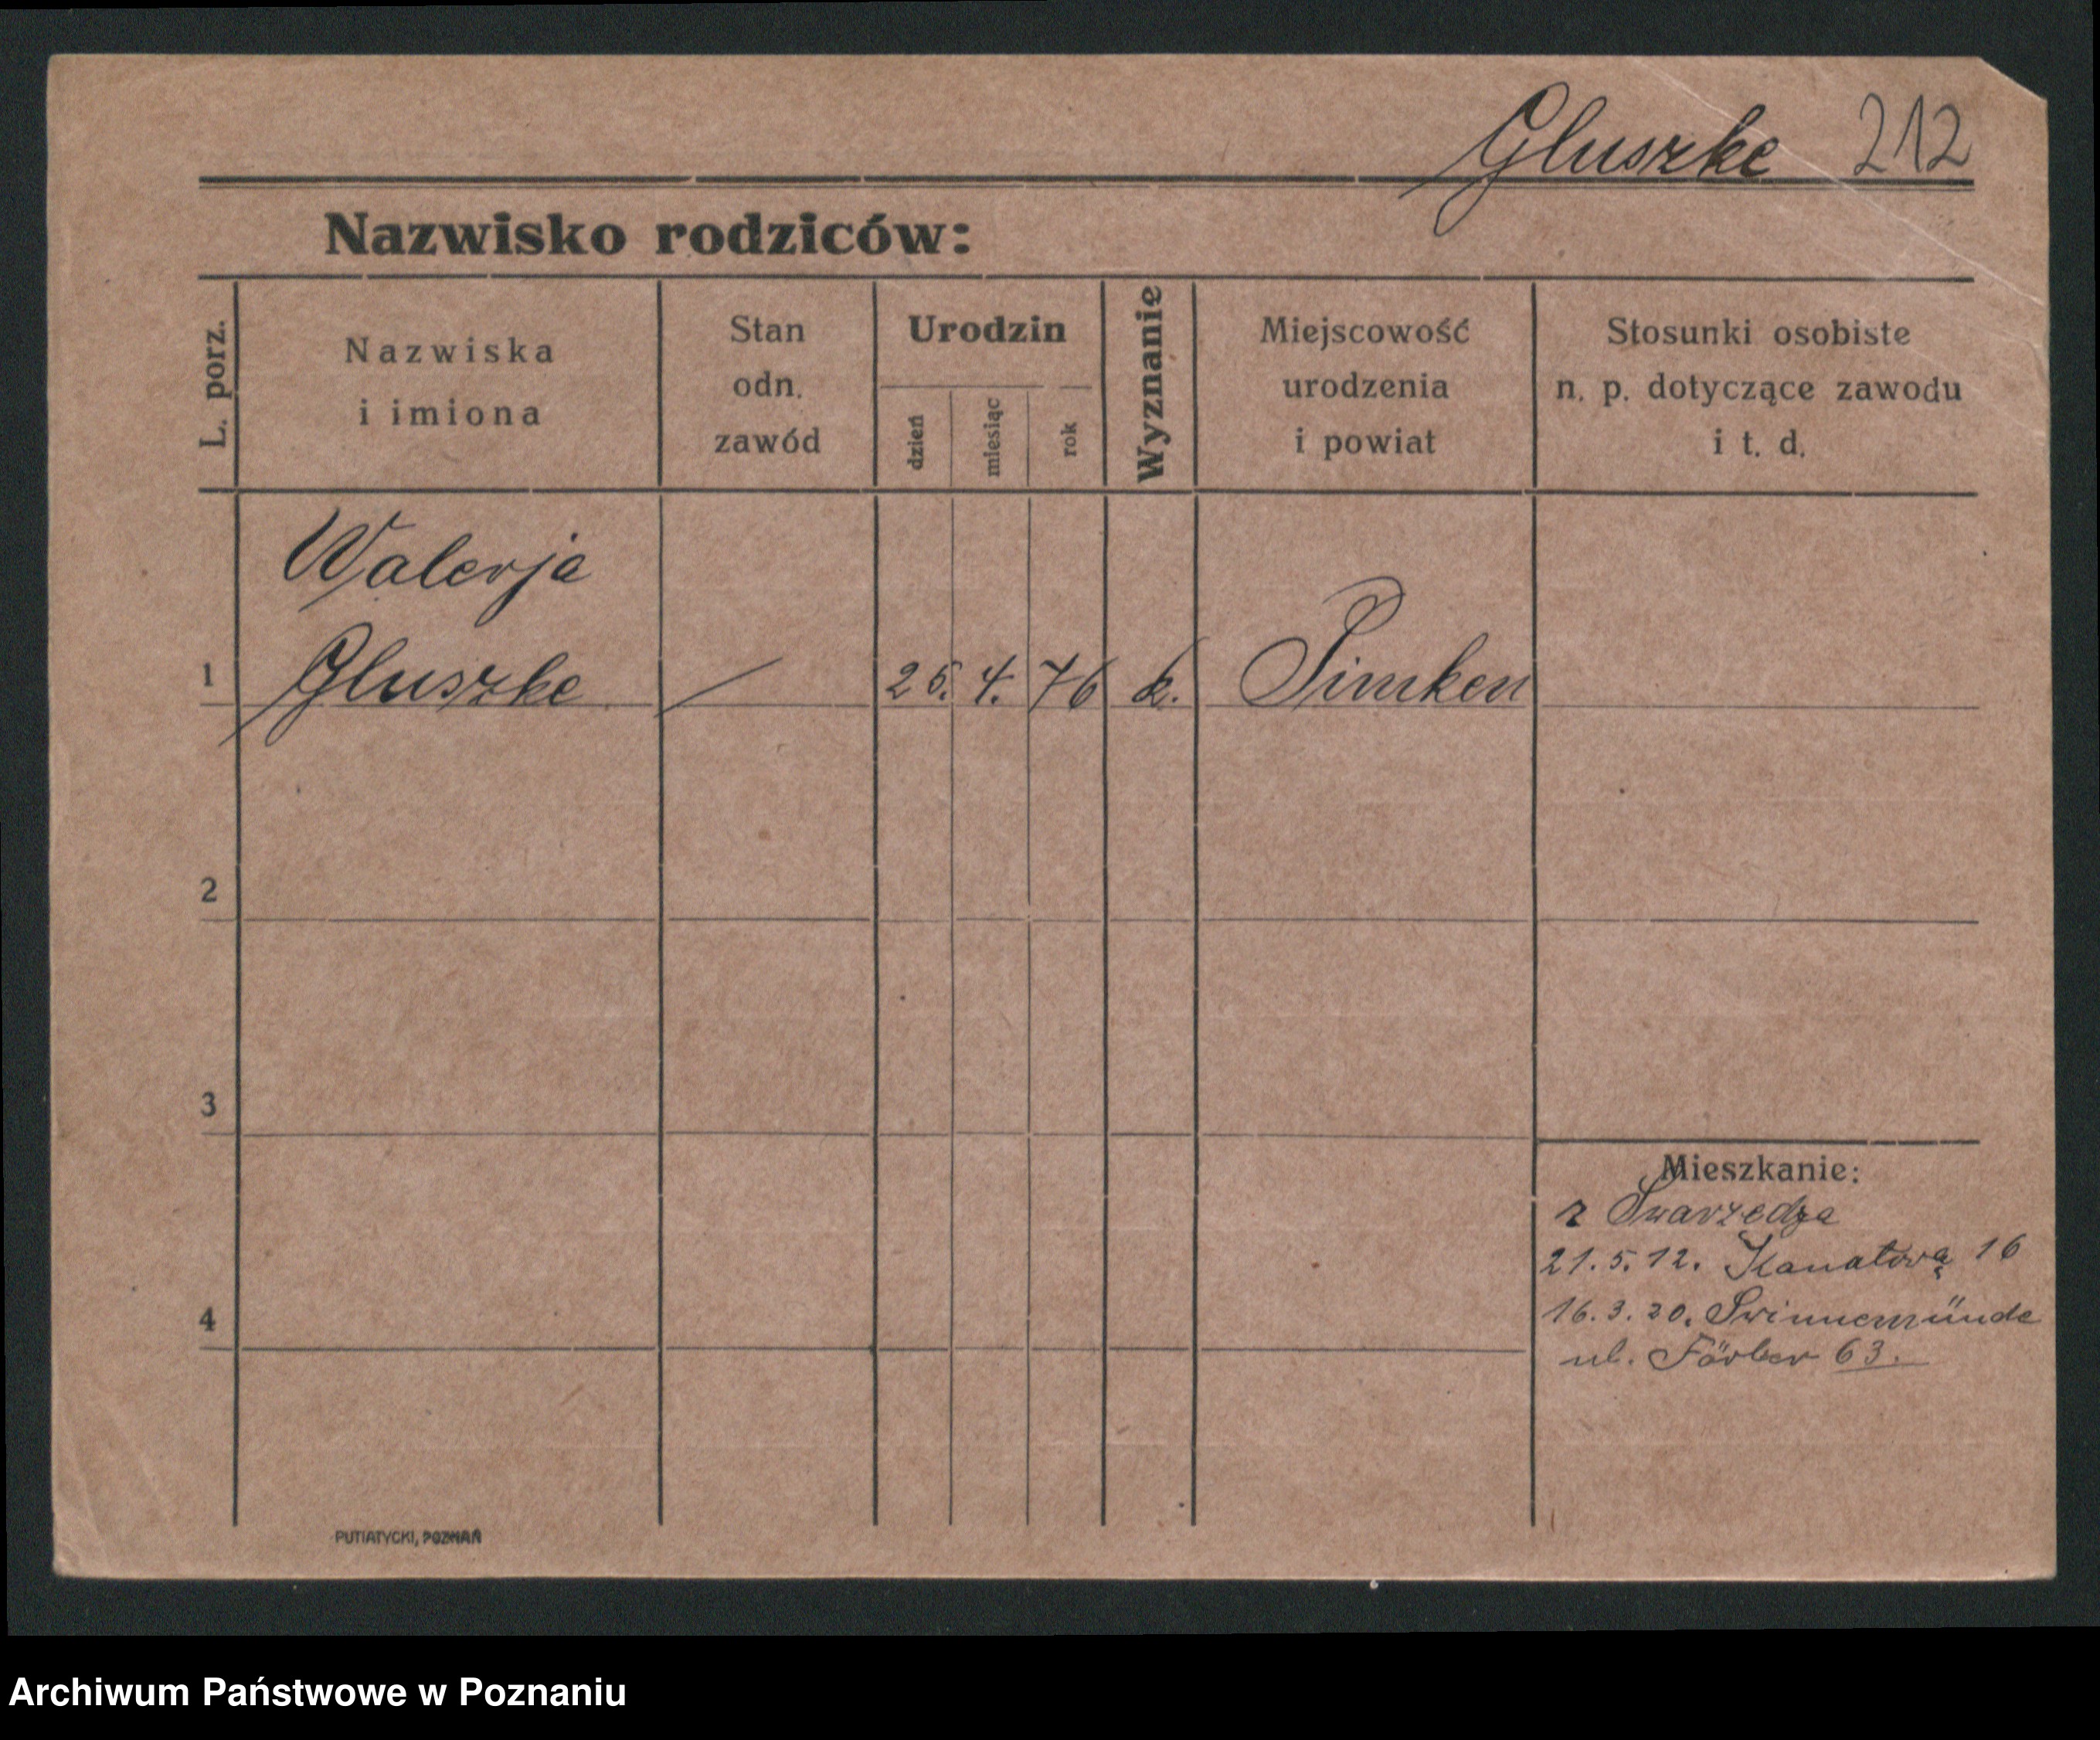 Gluszke 212
Nazwisko rodziców:
L. porz.
Nazwiska
i imiona
Stan
odn.
zawód
Urodzin
dzień
miesiąc
rok
Wyznanie
Miejscowość
urodzenia
i powiat
Stosunki osobiste
n. p. dotyczące zawodu
i t. d.
Walerja
1 Gluszke / 25. 4. 76 k. Pimken
2
3
4
Mieszkanie:
z Swarzędza
21. 5. 12. Kanatową 16
16. 3. 20. Swinnemünde
ul. Färber 63.
PUTIATYCKI, POZNAŃ
Archiwum Państwowe w Poznaniu